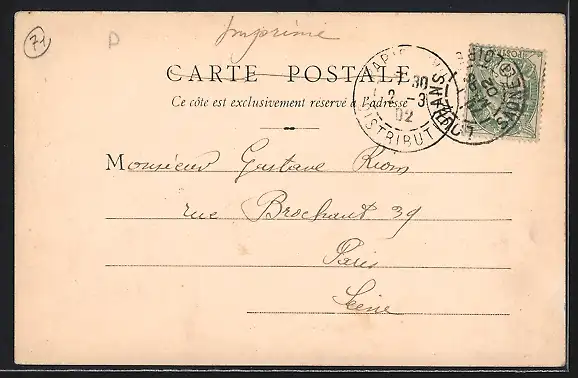 71
D
Imprimé
CARTE POSTALE
Ce côté est exclusivement réservé à l'adresse
PARIS
30
2 - 3
02
DISTRIBUTION
Monsieur Gustave Rion
rue Brochant 39
Paris
Seine